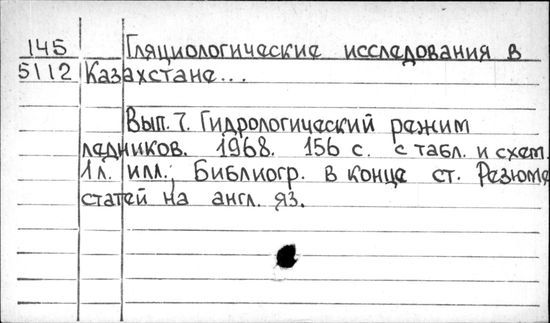 145 Гляциологические исследования в
5112 Казахстане...
Вып. 7. Гидрологический режим
ледников. 1968. 156 с. с табл. и схем.
1 л. илл.; Библиогр. в конце ст. Резюме
статей на англ. яз.